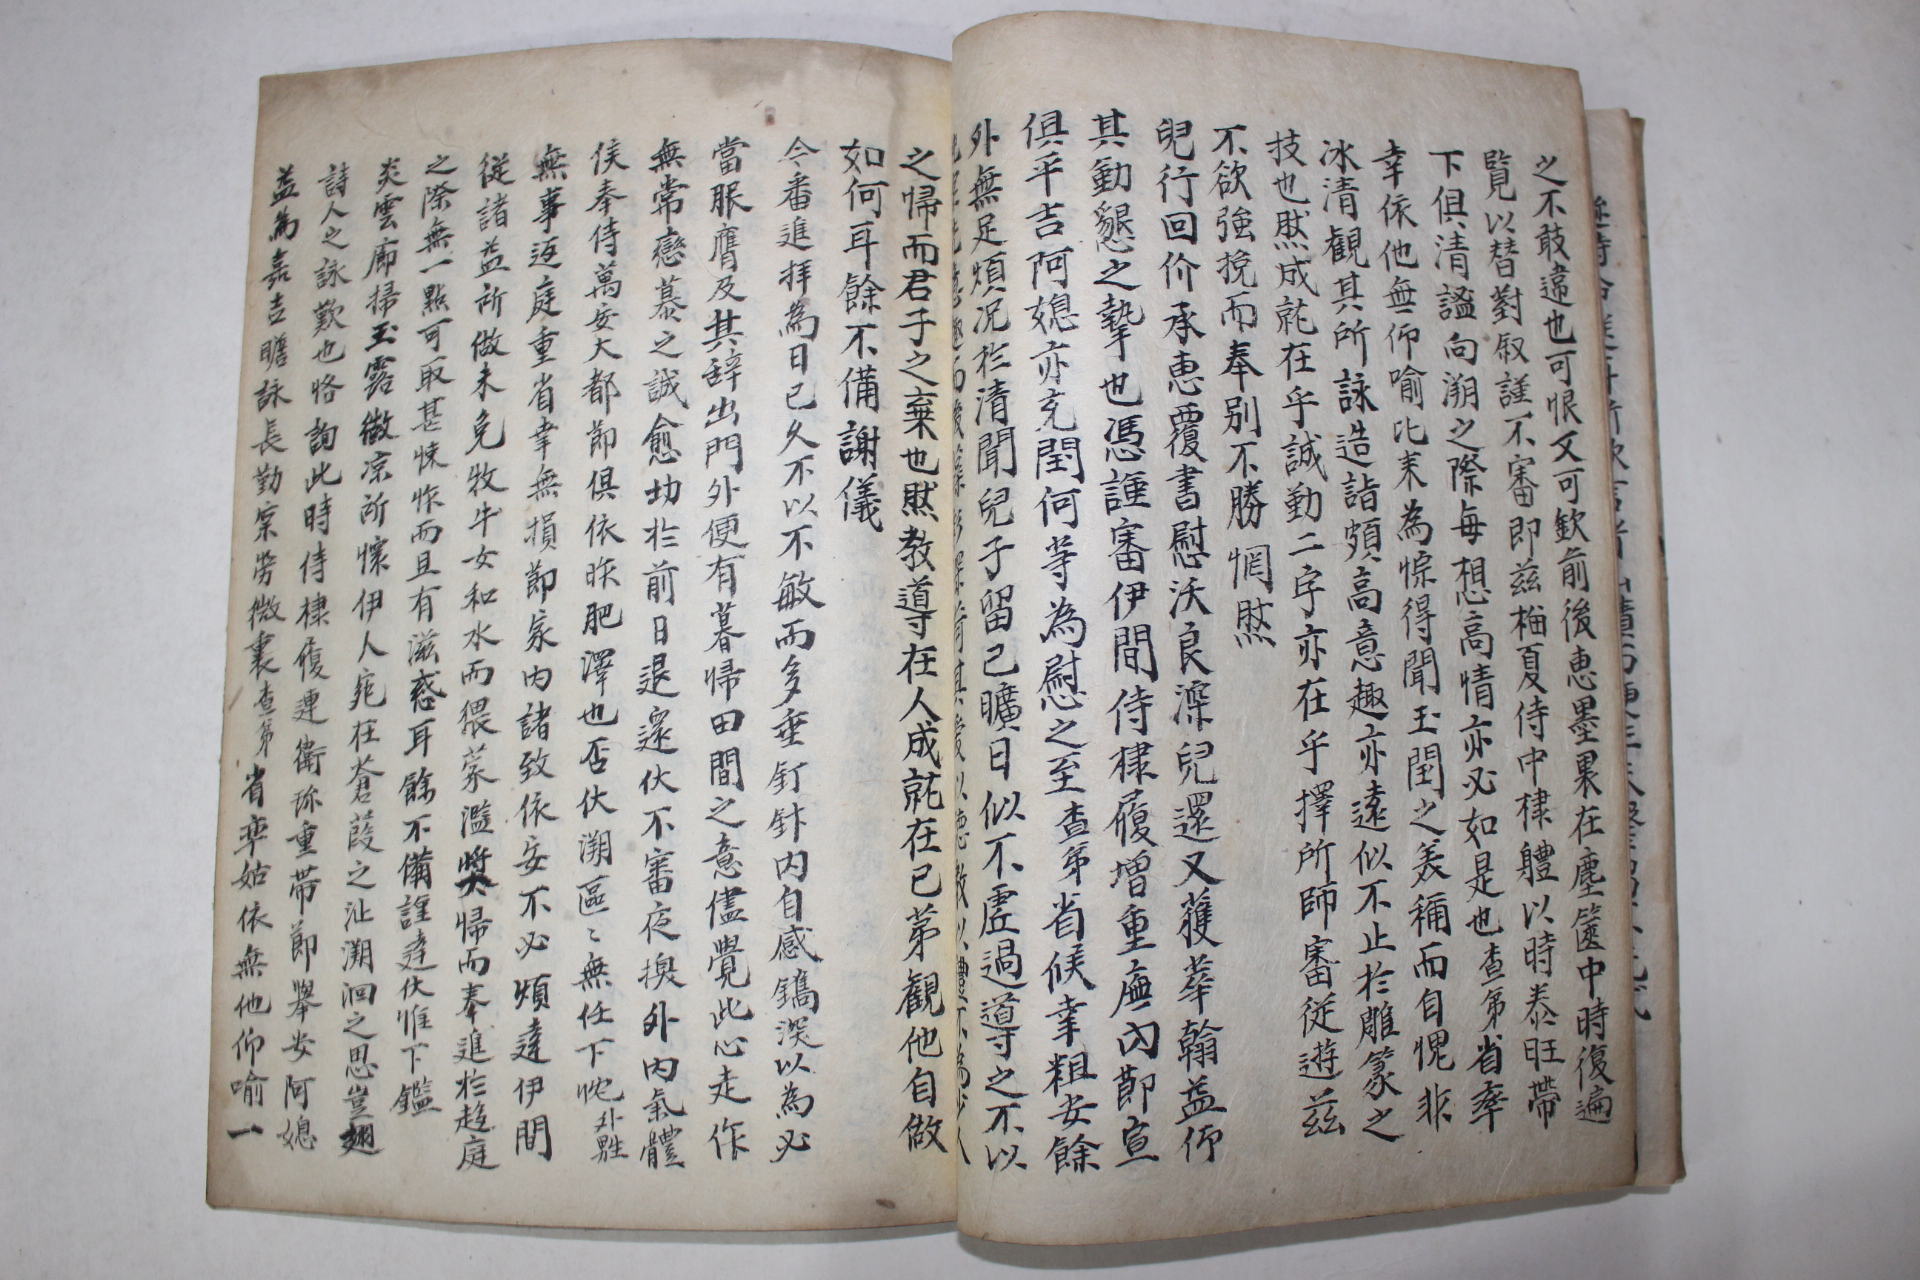 之不敢違也可恨又可欽前後惠墨裏在塵篋中時復遍
覽以替對叙謹不審即茲梅夏侍中棣軆以時泰旺帶
下俱清謐向溯之際每想高情亦必如是也査弟省率
幸依他無仰喻比来為悰得聞玉閏之美稱而自愧非
冰清觀其所詠造詣頗高意趣亦遠似不止於雕篆之
技也然成就在乎誠勤二字亦在乎擇所師審從遊茲
不欲強挽而奉別不勝惘然
兒行回价承惠覆書慰沃良深兒還又獲華翰益仰
其勤懇之摯也憑謹審伊間侍棣履增重廡內節宣
俱平吉阿媳亦充閏何等為慰之至査弟省候幸粗安餘
外無足煩况於清聞兒子留已曠日似不虛過導之不以
之歸而君子之棄也然教導在人成就在已弟觀他自做
如何耳餘不備謝儀
今番進拜為日已久不以不敏而多垂釘針內自感鐫深以為必
當服膺及其辞出門外便有暮歸田間之意儘覺此心走作
無常戀慕之誠愈切於前日退還伏不審夜換外內氣體
侯奉侍萬安大都節俱依昨肥澤也否伏溯區〻無任下忱外甥
無事返庭重省幸無損節家內諸致依安不必煩達伊間
從諸益所做未免牧牛女和水而猥蒙濫奬歸而奉進於趍庭
之際無一點可取甚悚怍而且有滋惑耳餘不備謹達伏惟下鑑
炎雲廊掃玉露微凉所懷伊人宛在蒼葭之沚溯洄之思豈翅
詩人之詠歎也恪詢此時侍棣履連衛珎重帶節擧安阿媳
益為嘉吉瞻詠長勤案勞微裏査弟省率姑依無他仰喻一